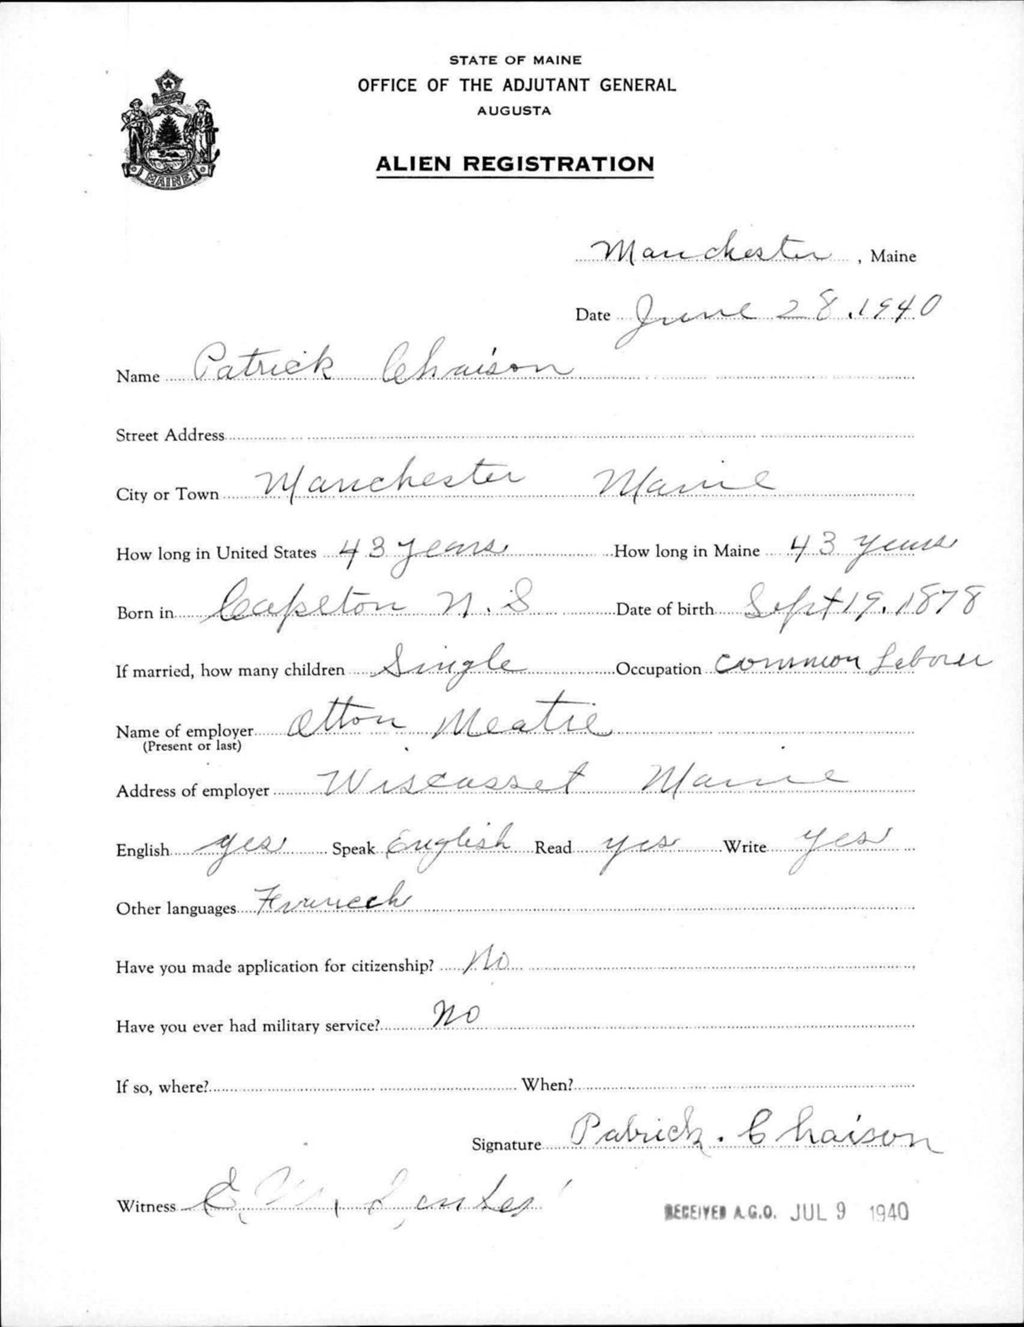 STATE OF MAINE
OFFICE OF THE ADJUTANT GENERAL
AUGUSTA
ALIEN REGISTRATION
MAINE
Manchester, Maine
Date June 28, 1940
Name Patrick Chaison
Street Address
City or Town Manchester Maine
How long in United States 43 years How long in Maine 43 years
Born in Capelton N.S Date of birth Sept 19, 1878
If married, how many children Single Occupation common Laborer
Name of employer Otton Meatie
(Present or last)
Address of employer Wiscasset Maine
English yes Speak English Read yes Write yes
Other languages French
Have you made application for citizenship? No
Have you ever had military service? No
If so, where? When?
Signature Patrick . Chaison
Witness E.
RECEIVED A.G.O. JUL 9 1940